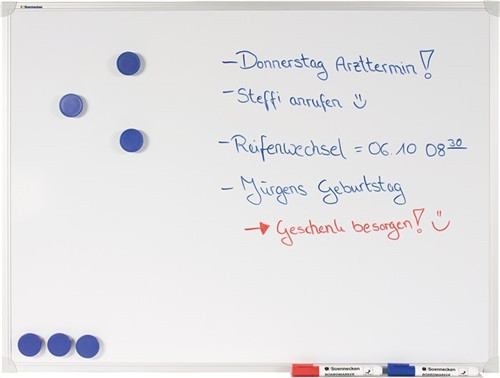 Soennecken
- Donnerstag Arzttermin!
- Steffi anrufen ☺
- Reifenwechsel = 06.10 08³⁰
- Jürgens Geburtstag
→ Geschenk besorgen! ☺
Soennecken
BOARDMARKER
Soennecken
BOARDMARKER